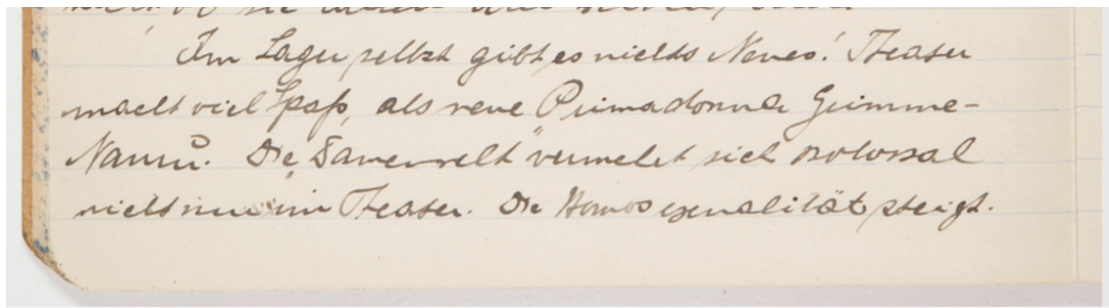 Im Lager selbst gibt es nichts Neues! Theater
macht viel Spaß, als neue Primadonna Grimme-
Nauru. Die „Damenwelt" vermehrt sich kolossal
nicht nur im Theater. Die Homosexualität steigt.